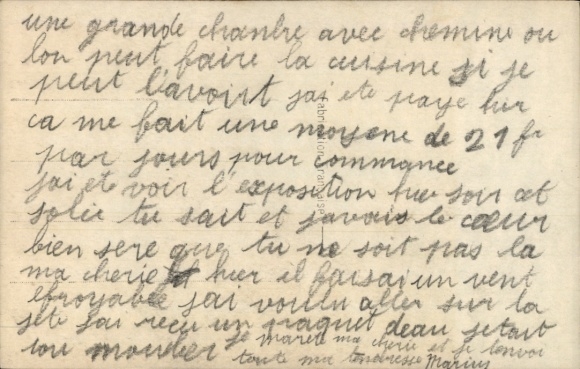 une grande chanbre avec chemine ou
lon peut faire la cuisine si je
peut l'avoirt jai ete paye hier
ca me fait une moyene de 21 fr
par jours pour commance
jai ete voir l'exposition hier soir cet
tu sait et j'avais le cœur
bien sere que tu ne soit pas la
ma cherie hier il faisai un vent
efroyable jai voulu aller sur la
jete jai recu un paquet deau jetait
tou mouller je ma cherie et je tenvoi
toute ma tendresse Marius